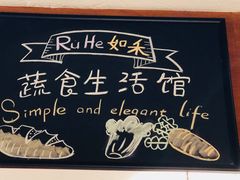 RuHe如禾
蔬食生活馆
Simple and elegant life